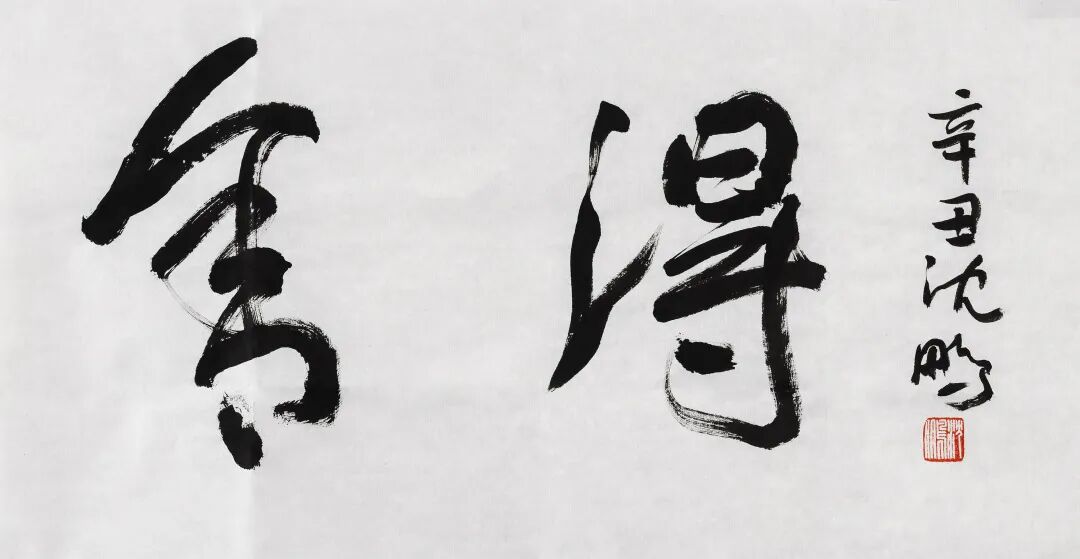 舍得
辛丑沈鹏